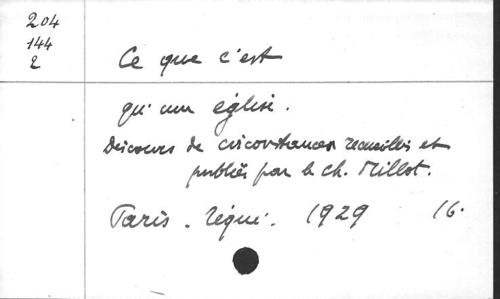 204
144
2
Ce que c'est
qu'une église.
Discours de circonstances recueillis et
publiés par le ch. Millot.
Paris. Téqui. 1929 16.